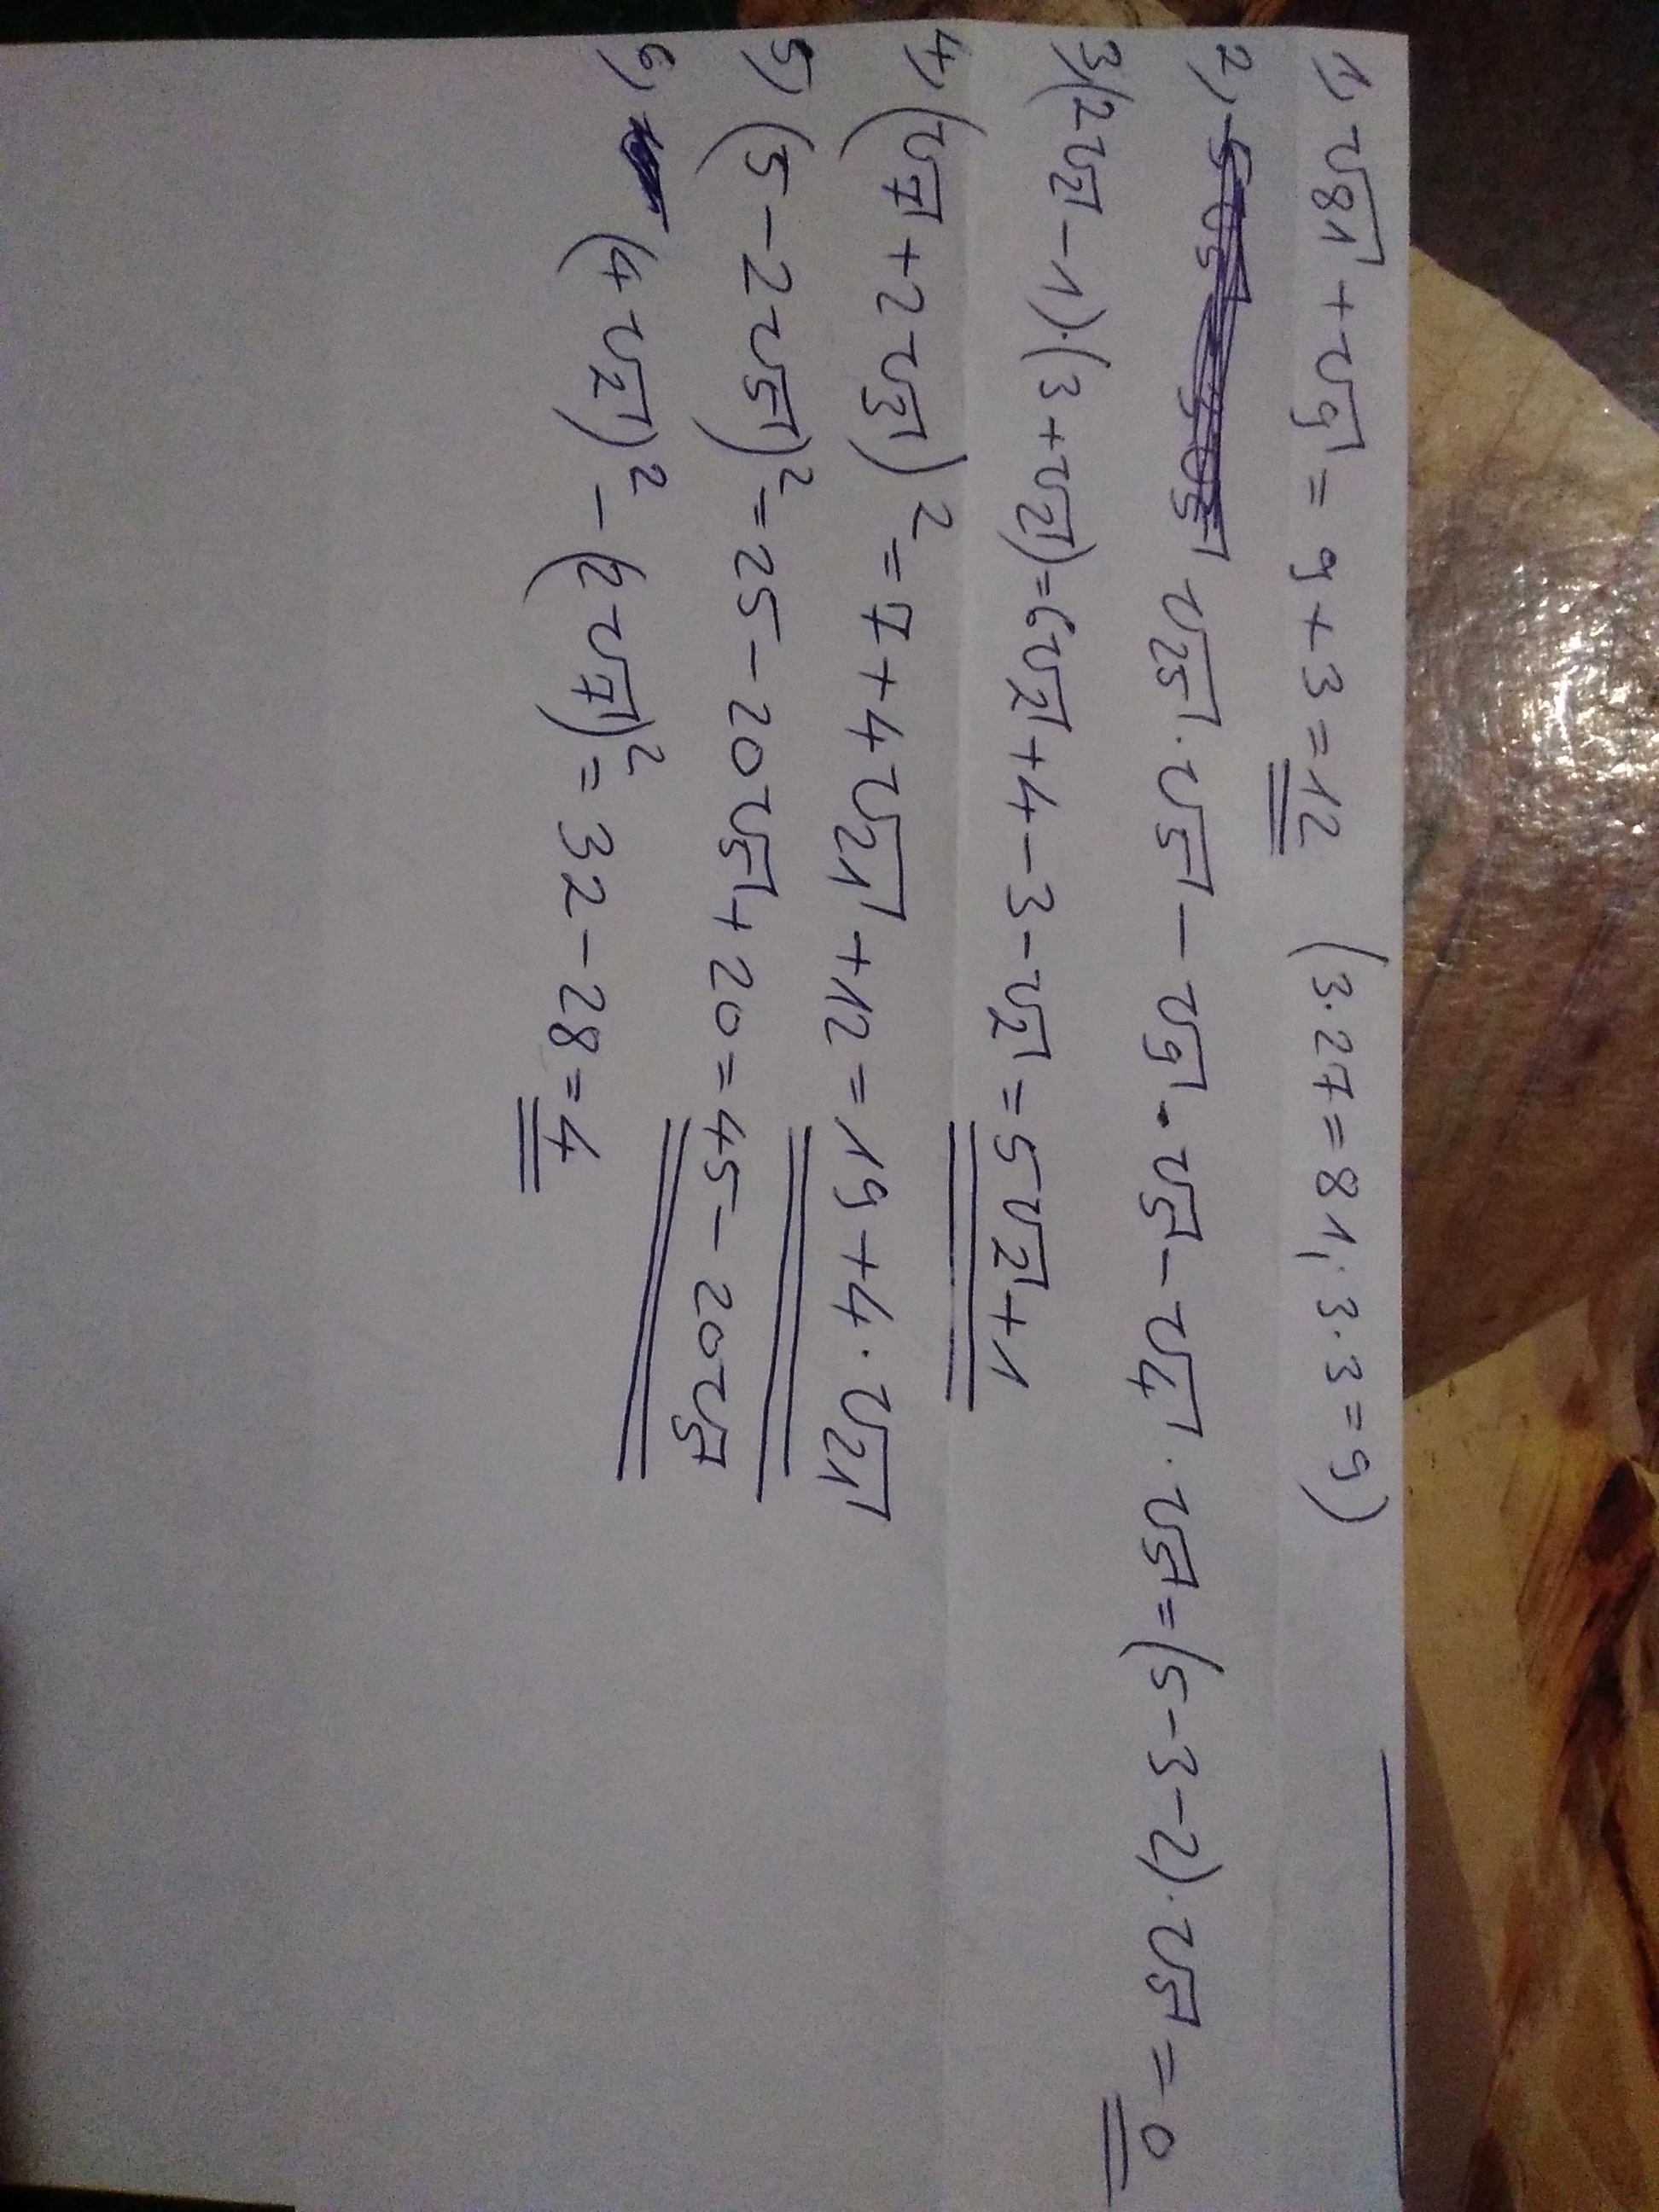 1) √81 + √9 = 9 + 3 = 12 (3·27 = 81, 3·3 = 9)
2) √25 · √5 - √9 · √5 - √4 · √5 = (5 - 3 - 2) · √5 = 0
3) (2√2 - 1) · (3 + √2) = 6√2 + 4 - 3 - √2 = 5√2 + 1
4) (√7 + 2√3)² = 7 + 4√21 + 12 = 19 + 4 · √21
5) (5 - 2√5)² = 25 - 20√5 + 20 = 45 - 20√5
6) (4√2)² - (2√7)² = 32 - 28 = 4